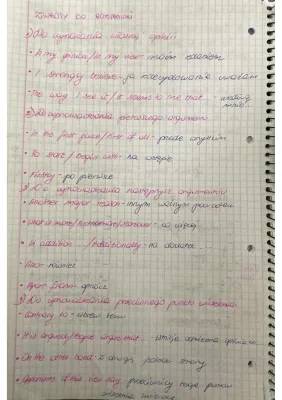 Zwroty do rozprawki
1) Do wyrażania własnej opinii
• In my opinion / In my view - moim zdaniem
• I strongly believe - ja zdecydowanie uważam
• The way I see it / It seems to me that - według mnie
2) Do wprowadzania pierwszego argumentu
• In the first place / First of all - przede wszystkim
• To start / begin with - na początek
• Firstly - po pierwsze
3) Do wprowadzania następnych argumentów
• Another major reason - innym ważnym powodem
• What is more / Furthermore / Moreover - co więcej
• In addition / Additionally - na dodatek
• Also - również
• Apart from - oprócz
Do wprowadzania przeciwnego punktu widzenia
• Contrary to - wbrew
• It is argued that
• On the other hand - z drugiej strony
• Opponents of this view say - przeciwnicy tego